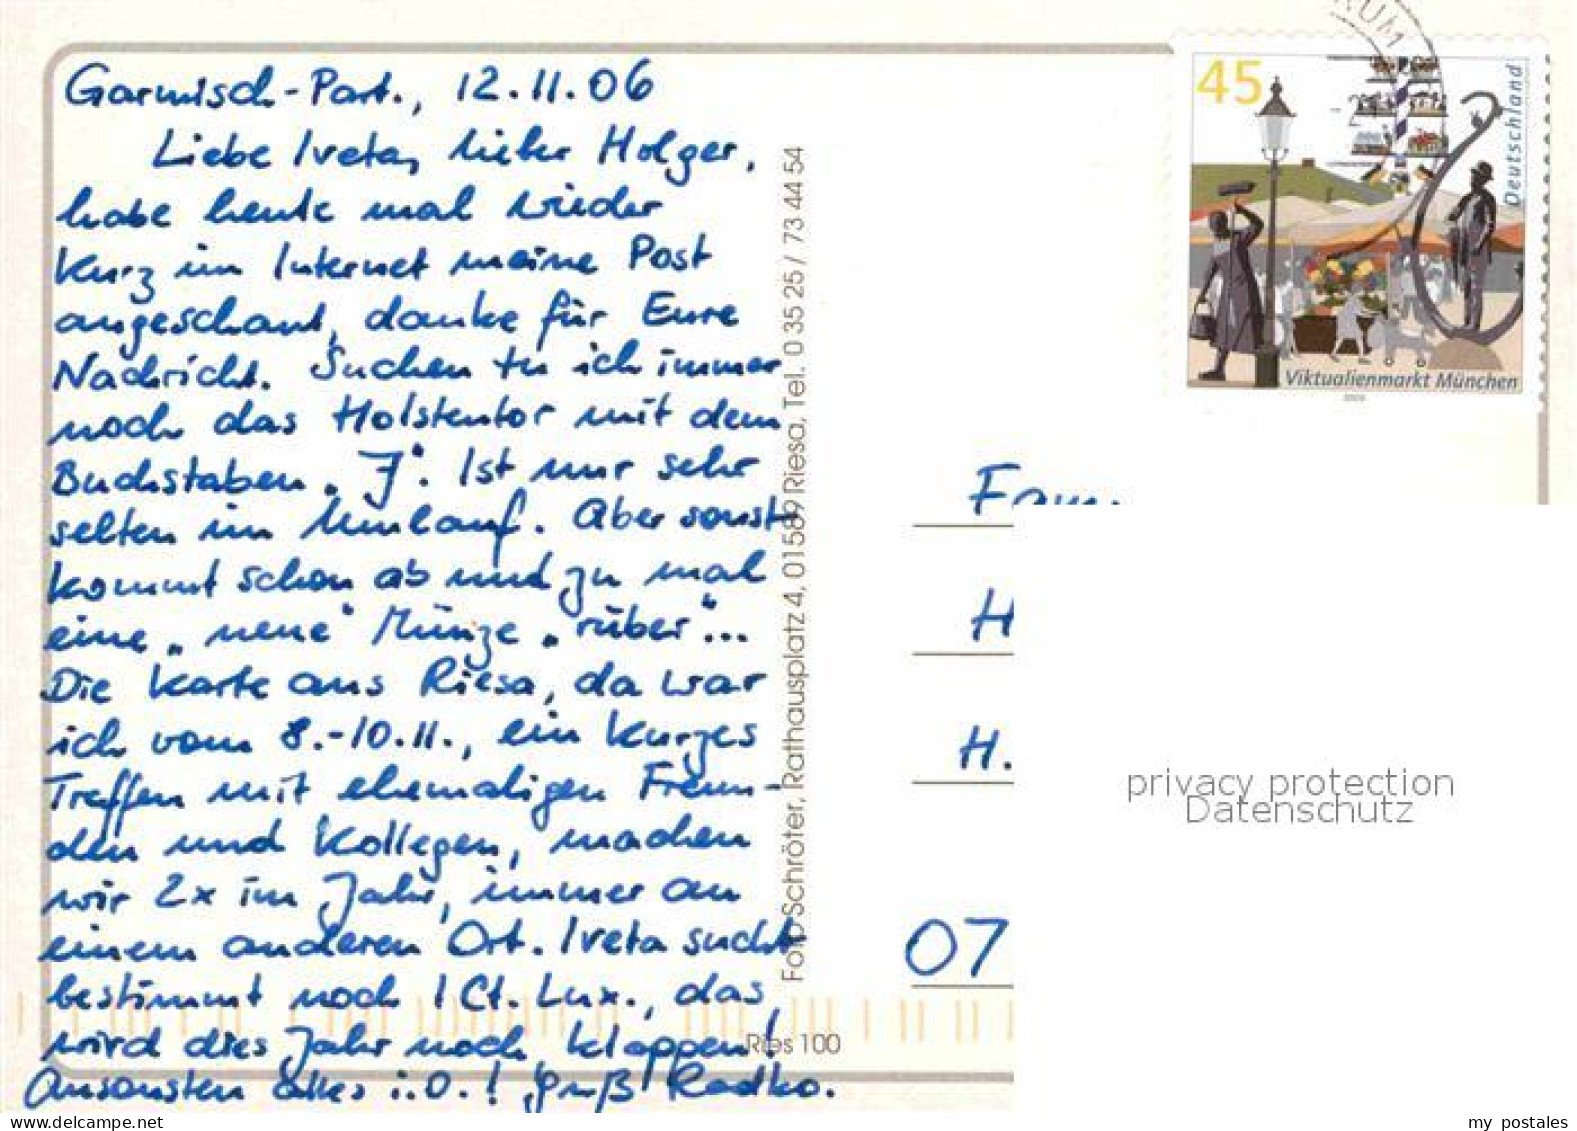 Garmisch-Part., 12.11.06
Liebe Iveta, lieber Holger,
habe heute mal wieder
kurz im Internet meine Post
angeschaut, danke für Eure
Nachricht. Suchen tu ich immer
noch das Holstentor mit dem
Buchstaben "J". Ist nur sehr
selten im Umlauf. Aber sonst
kommt schon ab und zu mal
eine "neue" Münze "rüber"...
Die Karte aus Riesa, da war
ich vom 8.-10.11., ein kurzes
Treffen mit ehemaligen Freun-
den und Kollegen, machen
wir 2x im Jahr, immer an
einem anderen Ort. Iveta sucht
bestimmt noch 1 Ct. Lux., das
wird dies Jahr noch klappen!
Ansonsten alles i.O.! Gruß Radko.
Foto Schröter, Rathausplatz 4, 01589 Riesa, Tel. 0 35 25 / 73 44 54
Ries 100
45
Deutschland
Viktualienmarkt München
Fam.
H
H.
07
privacy protection
Datenschutz
my postales